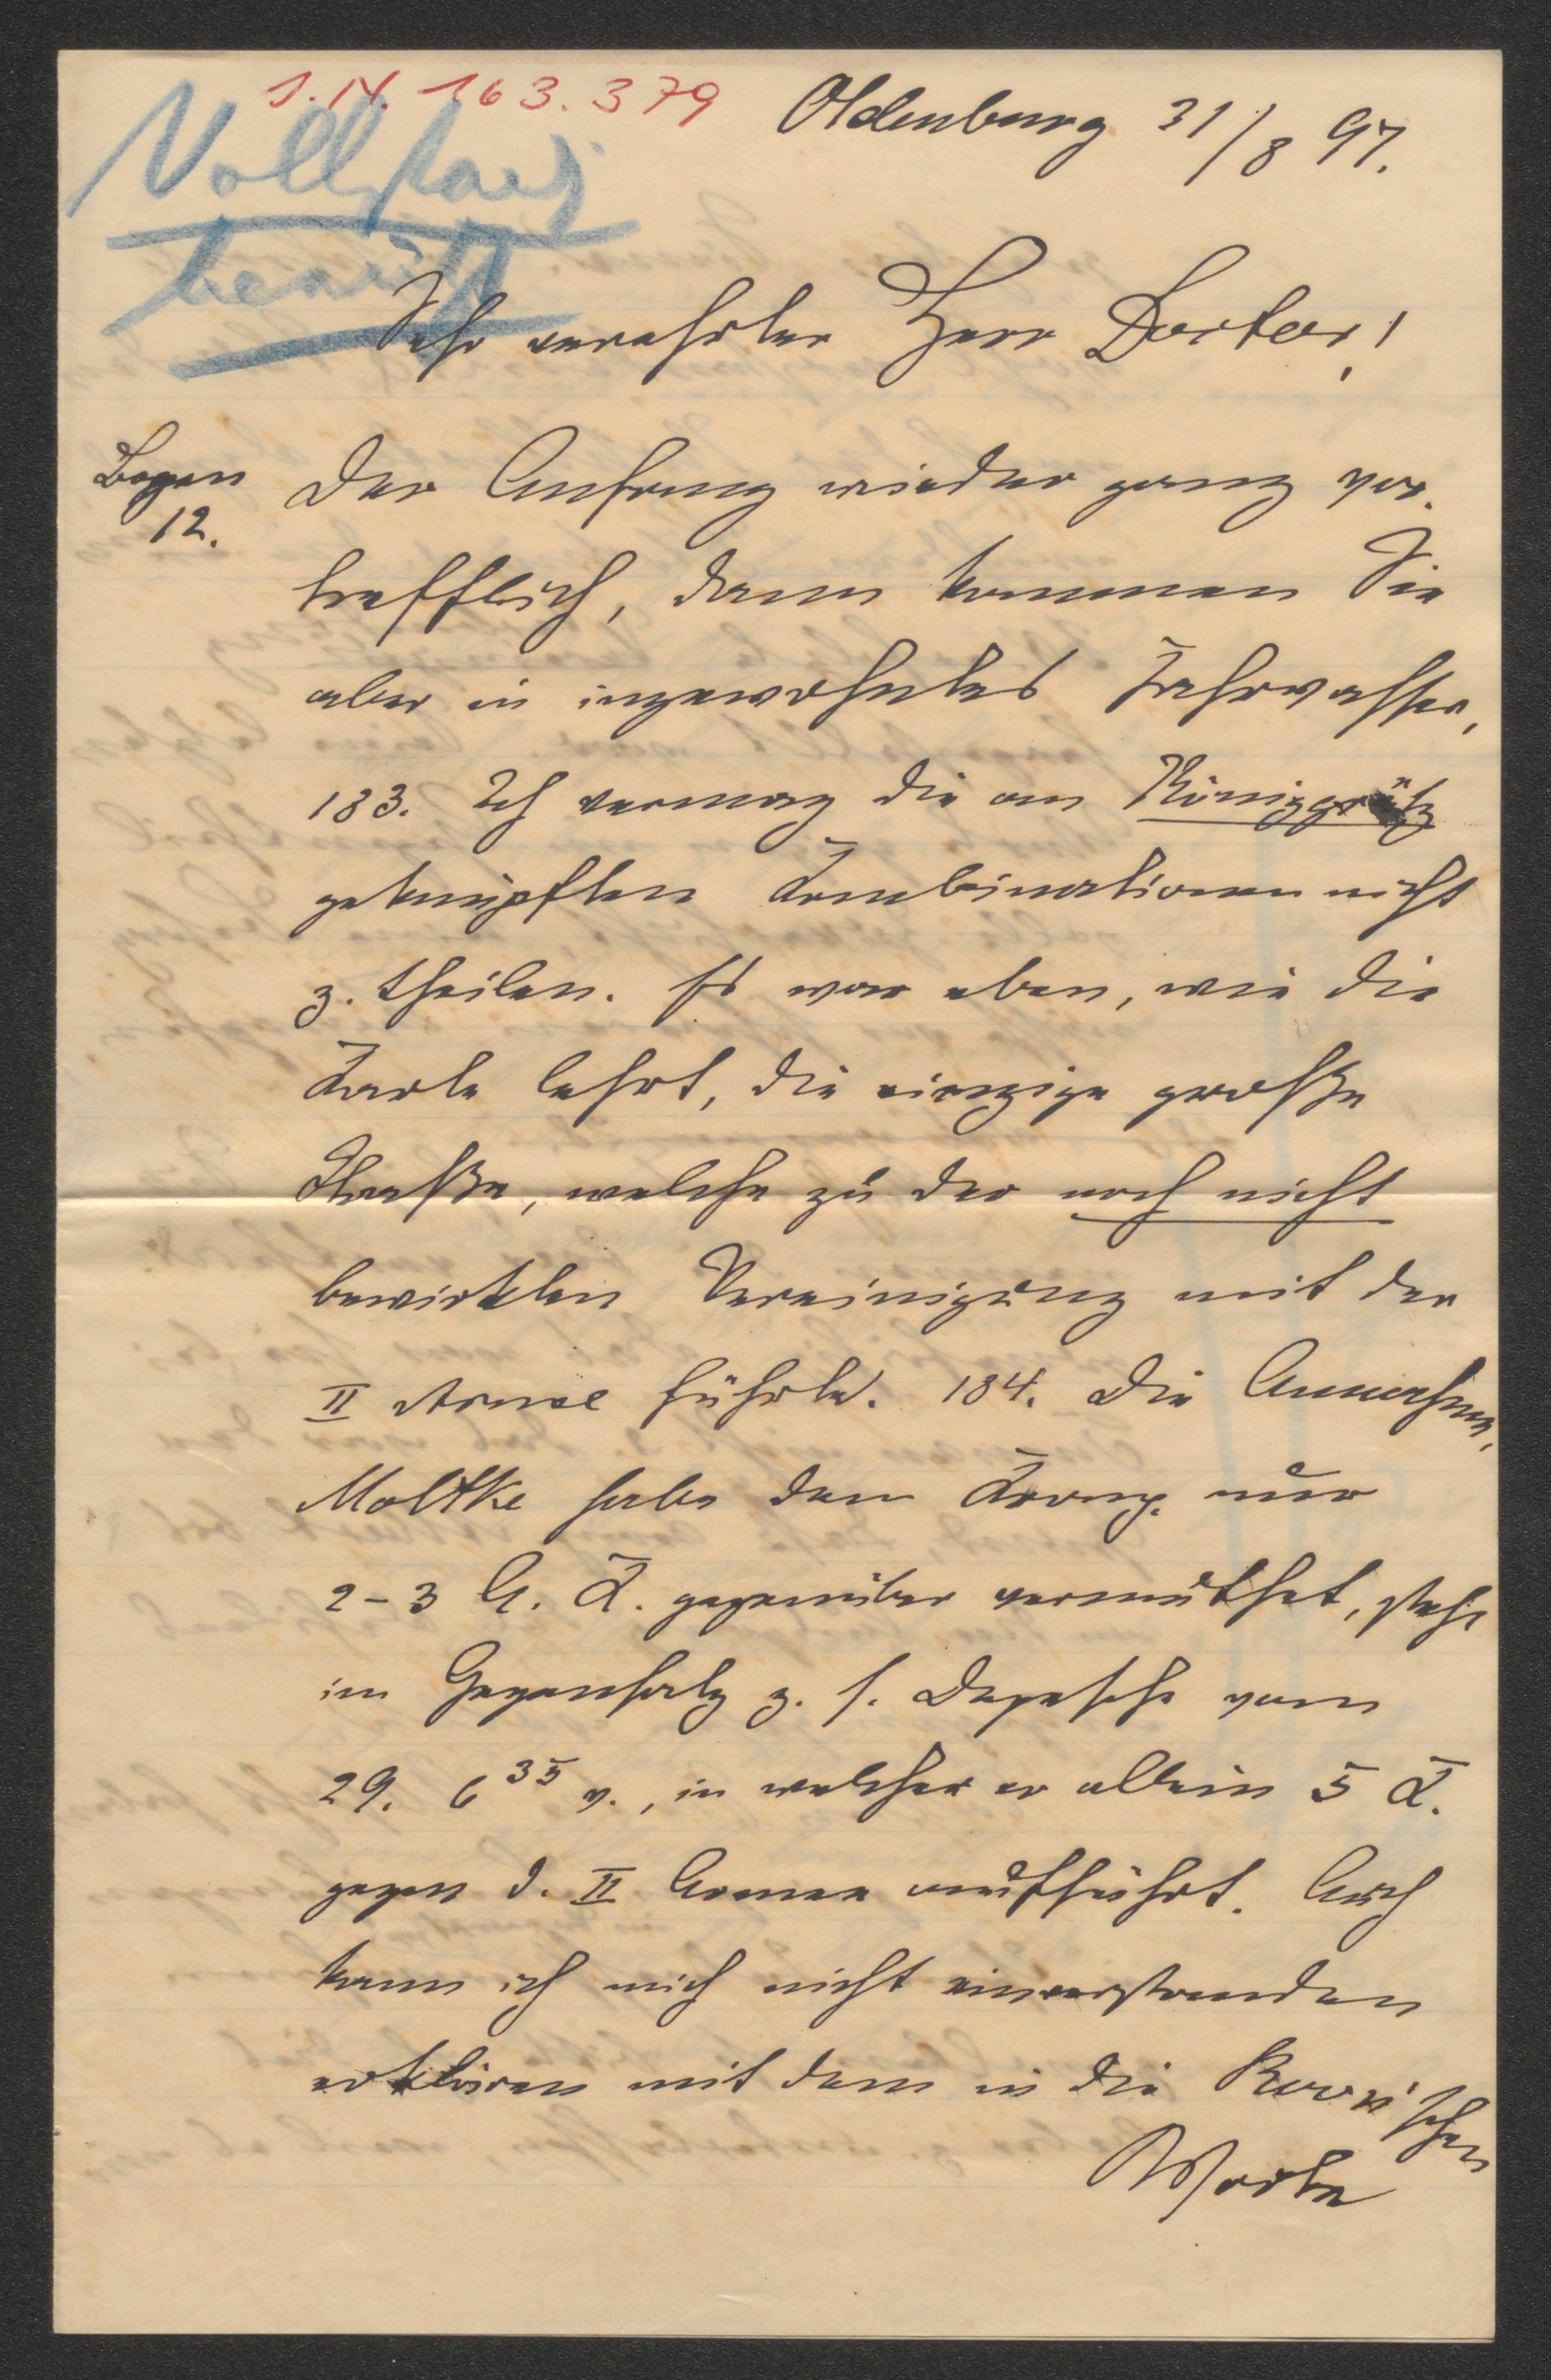 I.N. 163.379
Oldenburg 31/8 97.
Vollständ
benützt
Sehr verehrter Herr Doctor!
Bogen
12.
Der Anfang wieder ganz vor-
trefflich, dann kommen Sie
aber in ungewohntes Fahrwasser,
183. Ich vermag die an Königgrätz
geknüpften Kombinationen nicht
z. theilen. Es war eben, wie die
Karte lehrt, die einzige große
Straße, welche zu der noch nicht
bewirkten Vereinigung mit der
II Armee führte. 184. Die Annahme,
Moltke habe dem Kronp. nur
2-3 A. K. gegenüber vermuthet, steht
im Gegensatz z. s. Depesche vom
29. 6 35 v., in welcher er allein 5 K.
gegen d. II Armee aufführt. Auch
kann ich mich nicht einverstanden
erklären mit dem in die
Worte